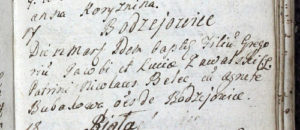 Koryznina.
17 Bodzejowice
Die 17 mart Idem bapt. filiū Grego
rii Jacobi et Luciæ Zawalski CC.
Patrini Nicolaus Belec cū Agnete
Bubadowa oēs de Bodzejowice.
18 Biała